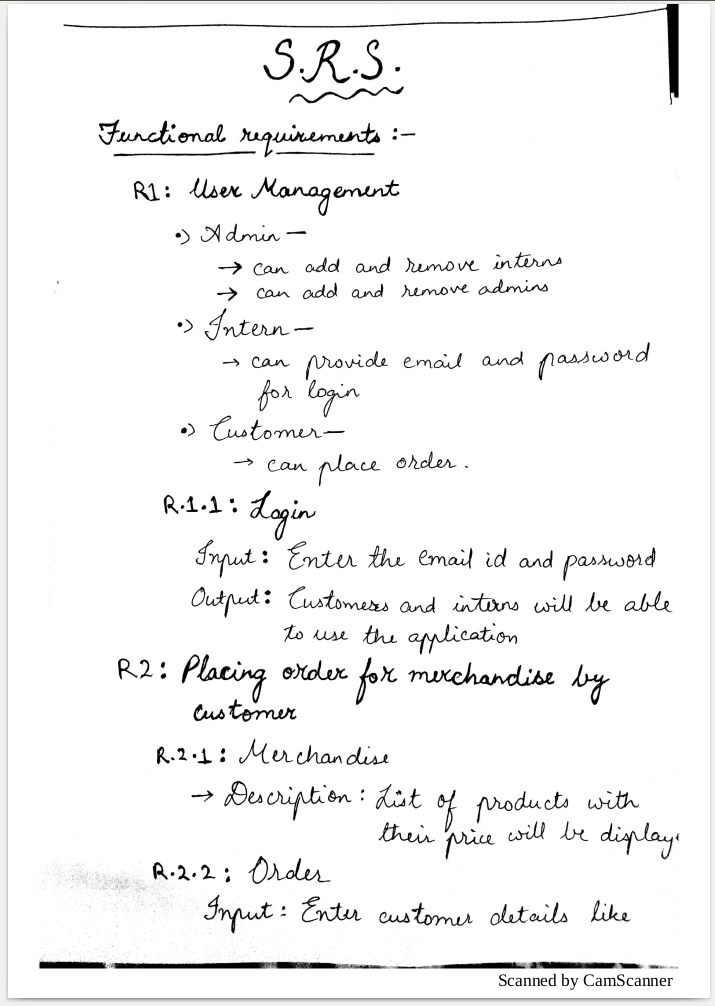 S.R.S.
Functional requirements :-
R1: User Management
•) Admin —
→ can add and remove interns
→ can add and remove admins
•) Intern —
→ can provide email and password
for login
•) Customer —
→ can place order.
R.1.1: Login
Input: Enter the email id and password
Output: Customers and interns will be able
to use the application
R2: Placing order for merchandise by
customer
R.2.1: Merchandise
→ Description: List of products with
their price will be display
R.2.2: Order
Input: Enter customer details like
Scanned by CamScanner